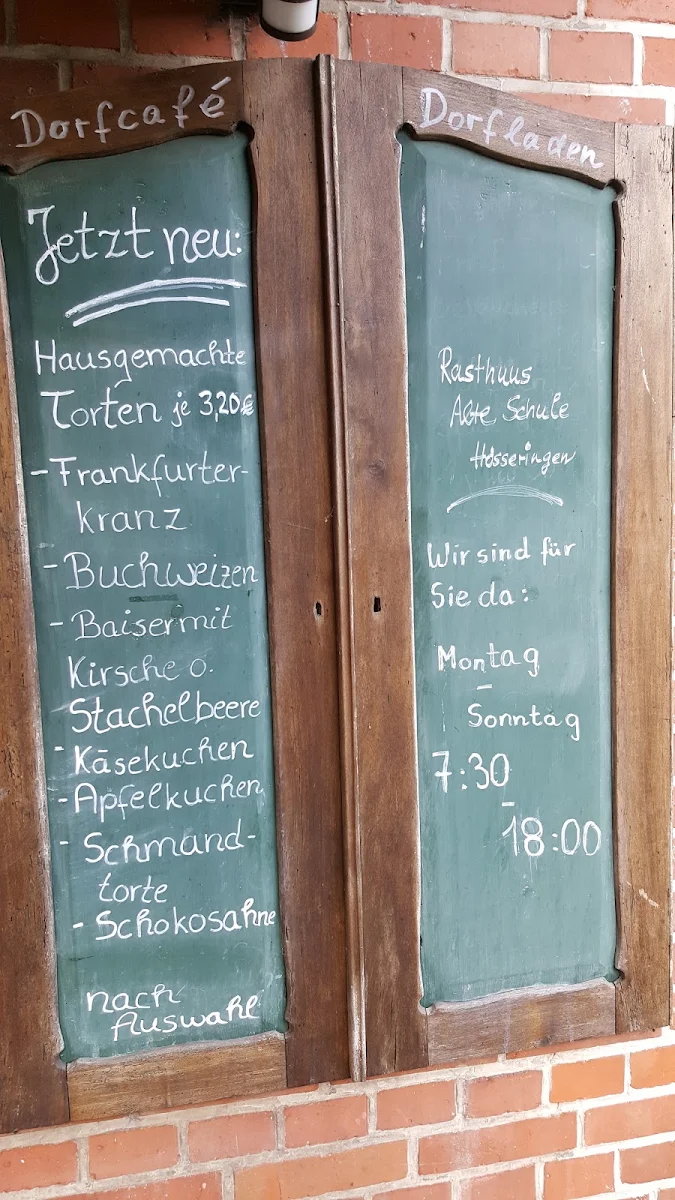 Dorfcafé
Jetzt neu:
Hausgemachte
Torten je 3,20€
- Frankfurter-
kranz
- Buchweizen
- Baiser mit
Kirsche o.
Stachelbeere
- Käsekuchen
- Apfelkuchen
- Schmand-
torte
- Schokosahne
nach
Auswahl
Dorfladen
Rasthuus
Alte Schule
Hösseringen
Wir sind für
Sie da:
Montag
-
Sonntag
7:30
-
18:00